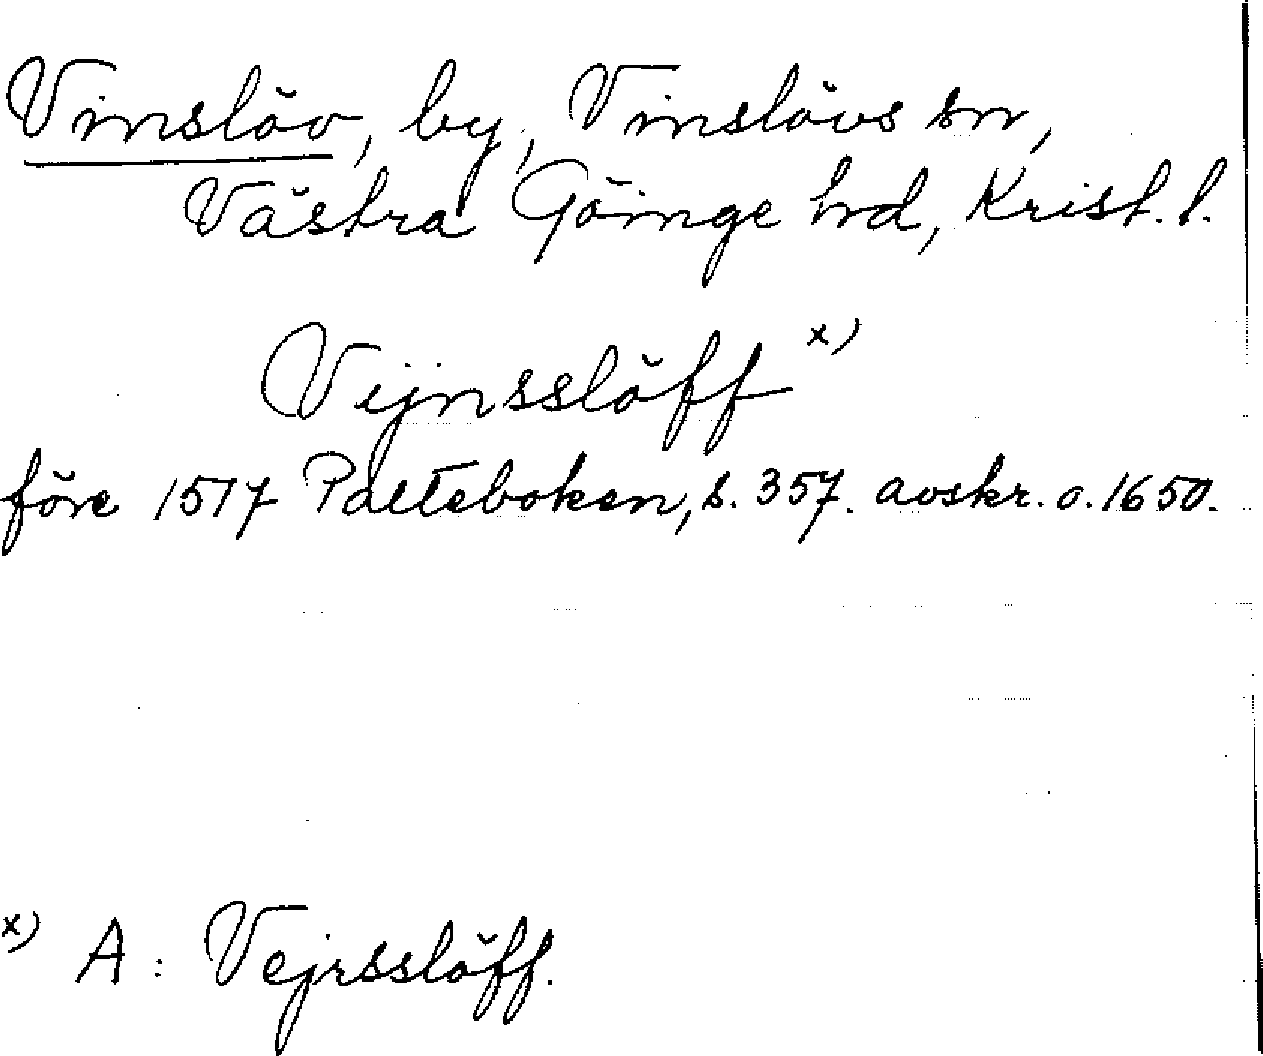 Vinslöv, by, Vinslövs sn,
Västra Göinge hd, Krist. l.
Vejnsslöff x)
före 1517 Palteboken, s. 357. avskr. o. 1650.
x) A: Vejrsslöff.